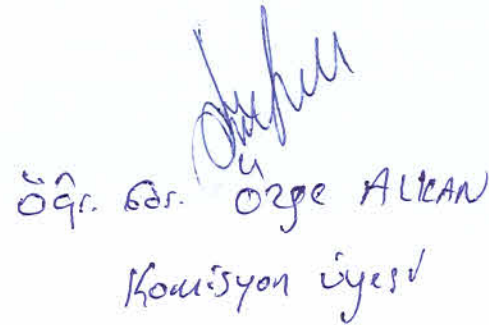 Öğr. Gör. Özge ALKAN
Komisyon üyesi